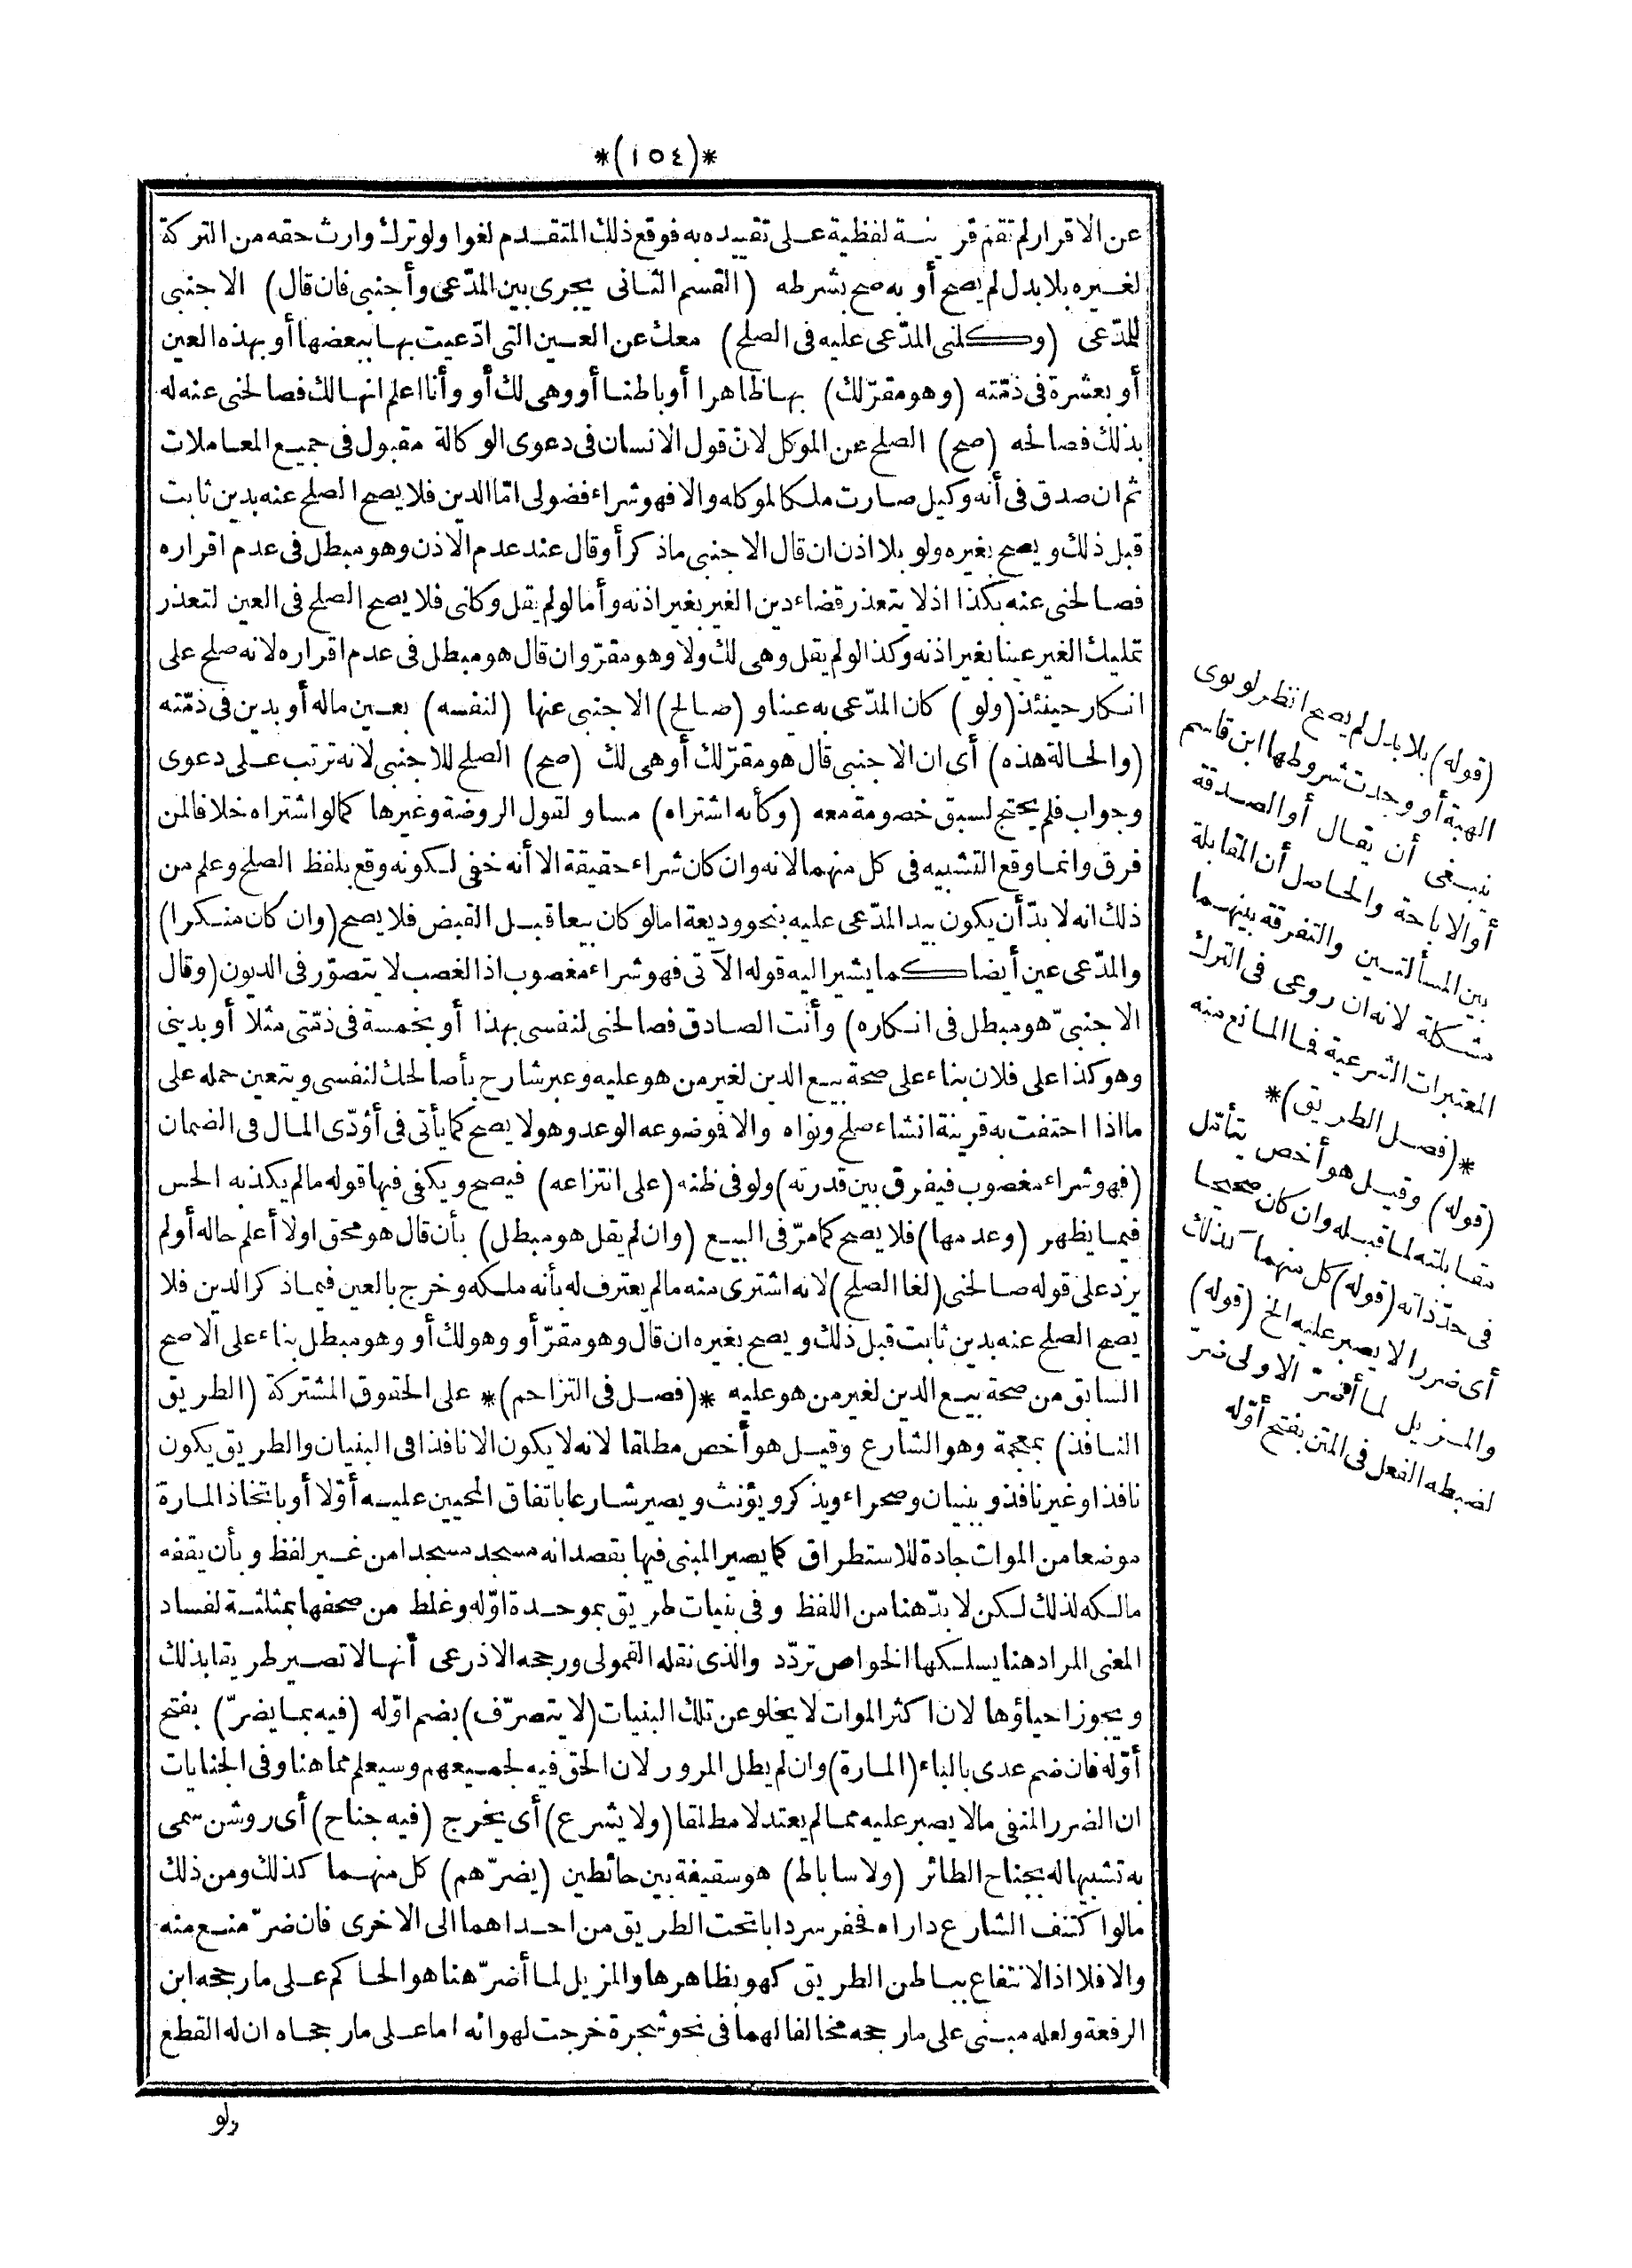 *(١٥٤)*
عن الاقرار لم تقم قرينة لفظية على تقييده به فوقع ذلك المتقدم لغوا ولو ترك وارث حقه من التركة
لغيره بلا بدل لم يصح أو به صح بشرطه (القسم الثانى يجرى بين المدّعى وأجنبى فان قال) الاجنبى
للمدّعى (وكلنى المدّعى عليه فى الصلح) معك عن العين التى ادّعيت بها ببعضها أو بهذه العين
أو بعشرة فى ذمّته (وهو مقرّ لك) بها ظاهرا أو باطنا أو وهى لك أو وأنا اعلم انها لك فصالحنى عنه له
بذلك فصالحه (صح) الصلح عن الموكل لانّ قول الانسان فى دعوى الوكالة مقبول فى جميع المعاملات
ثم ان صدق فى أنه وكيل صارت ملكا لموكله والا فهو شراء فضولى امّا الدين فلا يصح الصلح عنه بدين ثابت
قبل ذلك ويصح بغيره ولو بلا اذن ان قال الاجنبى ما ذكر أو قال عند عدم الاذن وهو مبطل فى عدم اقراره
فصالحنى عنه بكذا اذ لا يتعذر قضاء دين الغير بغير اذنه وأما لو لم يقل وكلنى فلا يصح الصلح فى العين لتعذر
تمليك الغير عينا بغير اذنه وكذا لو لم يقل وهى لك ولا وهو مقرّ وان قال هو مبطل فى عدم اقراره لانه صلح على
انكار حينئذ (ولو) كان المدّعى به عينا و (صالح) الاجنبى عنها (لنفسه) بعين ماله أو بدين فى ذمّته
(والحالة هذه) أى ان الاجنبى قال هو مقرّ لك أو هى لك (صح) الصلح للاجنبى لانه ترتب على دعوى
وجواب فلم يحتج لسبق خصومة معه (وكأنه اشتراه) مساو لقول الروضة وغيرها كما لو اشتراه خلافا لمن
فرق وانما وقع التشبيه فى كل منهما لانه وان كان شراء حقيقة الا أنه خفى لكونه وقع بلفظ الصلح وعلم من
ذلك انه لا بدّ أن يكون بيد المدّعى عليه بنحو وديعة اما لو كان بيعا قبل القبض فلا يصح (وان كان منكرا)
والمدّعى عين أيضا كما يشير اليه قوله الآتى فهو شراء مغصوب اذ الغصب لا يتصوّر فى الديون (وقال
الاجنبىّ هو مبطل فى انكاره) وأنت الصادق فصالحنى لنفسى بهذا أو بخمسة فى ذمّتى مثلا أو بدينى
وهو كذا على فلان بناء على صحة بيع الدين لغير من هو عليه وعبر شارح بأصالحك لنفسى ويتعين حمله على
ما اذا احتفت به قرينة انشاء صلح ونواه والا فموضوعه الوعد وهو لا يصح كما يأتى فى أؤدّى المال فى الضمان
(فهو شراء مغصوب فيفرق بين قدرته) ولو فى ظنه (على انتزاعه) فيصح ويكفى فيها قوله ما لم يكذبه الحس
فيما يظهر (وعدمها) فلا يصح كما مرّ فى البيع (وان لم يقل هو مبطل) بأن قال هو محق اولا أعلم حاله أو لم
يزد على قوله صالحنى (لغا الصلح) لانه اشترى منه ما لم يعترف له بأنه ملكه وخرج بالعين فيما ذكر الدين فلا
يصح الصلح عنه بدين ثابت قبل ذلك ويصح بغيره ان قال وهو مقرّ أو وهو لك أو وهو مبطل بناء على الاصح
السابق من صحة بيع الدين لغير من هو عليه *(فصل فى التزاحم)* على الحقوق المشتركة (الطريق
النافذ) بمعجمة وهو الشارع وقيل هو أخص مطلقا لانه لا يكون الا نافذا فى البنيان والطريق يكون
نافذا وغير نافذ وببنيان وصحراء ويذكر ويؤنث ويصير شارعا باتفاق المحيين عليه أوّلا أو باتخاذ المارة
موضعا من الموات جادة للاستطراق كما يصير المبنى فيها بقصد انه مسجد مسجدا من غير لفظ وبأن يقفه
مالكه لذلك لكن لا بدّ هنا من اللفظ وفى بنيات طريق بموحدة اوّله وغلط من صحفها بمثلثة لفساد
المعنى المراد هنا يسلكها الخواص تردّد والذى نقله القمولى ورجحه الاذرعى أنها لا تصير طريقا بذلك
ويجوز احياؤها لان اكثر الموات لا يخلو عن تلك البنيات (لا يتصرّف) بضم اوّله (فيه بما يضرّ) بفتح
أوّله فان ضم عدى بالباء (المارة) وان لم يطل المرور لان الحق فيه لجميعهم وسيعلم مما هنا وفى الجنايات
ان الضرر المنفى ما لا يصبر عليه مما لم يعتد لا مطلقا (ولا يشرع) أى يخرج (فيه جناح) أى روشن سمى
به تشبيها له بجناح الطائر (ولا ساباط) هو سقيفة بين حائطين (يضرّهم) كل منهما كذلك ومن ذلك
ما لو اكتنف الشارع داراه فحفر سردابا تحت الطريق من احداهما الى الاخرى فان ضرّ منع منه
والا فلا اذ الانتفاع بباطن الطريق كهو بظاهرها والمزيل لما أضرّ هنا هو الحاكم على ما رجحه ابن
الرفعة ولعله مبنى على ما رجحه مخالفا لهما فى نحو شجرة خرجت لهوائه اما على ما رجحاه ان له القطع
ولو
(قوله) بلا بدل لم يصح انظر لو نوى
الهبة أو وجدت شروطها ابن قاسم
ينبغى أن يقال أو الصدقة
أو الاباحة والحاصل أن المقابلة
بين المسألتين والتفرقة بينهما
مشكلة لانه ان روعى فى الترك
المعتبرات الشرعية فما المانع منه
*(فصل الطريق)*
(قوله) وقيل هو أخص يتأمّل
مقابلته لما قبله وان كان صحيحا
فى حدّ ذاته (قوله) كل منهما كذلك
أى ضررا لا يصبر عليه الخ (قوله)
والمزيل لما أضرّ الاولى ضرّ
لضبطه الفعل فى المتن بفتح أوّله